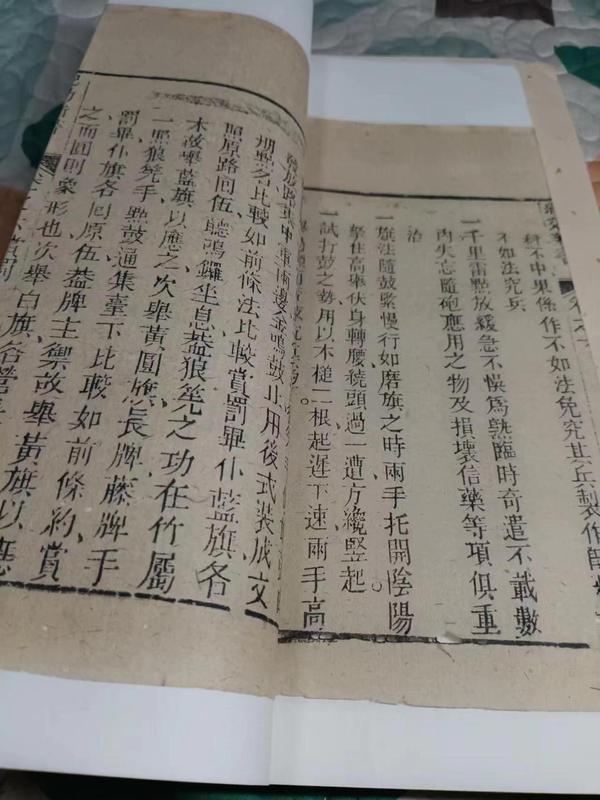 不中果係作不如法免究其兵製作師
不如法究兵
一千里雷點放緩急不悞爲熟臨時奇遣不載數
內失忘隨砲應用之物及損壞信藥等項俱重
治
一旗法隨鼓緊慢行如磨旗之時兩手托開陰陽
拏住高舉伏身轉腰繞頭過一遭方纔豎起
一試打鼓之勢用以木槌二根起遲下速兩手高
鳴鼓止用後式裝成文
點名比較如前條法比較賞罰畢仆藍旗各
照原路回伍聽鳴鑼坐息蓋狼筅之功在竹屬
木故舉藍旗以應之次舉黃圓旗長牌藤牌手
一照狼筅手點鼓通集臺下比較如前條約賞
罰畢仆旗各回原伍蓋牌主禦故舉黃旗以應
之而圓則象形也次舉白旗各營